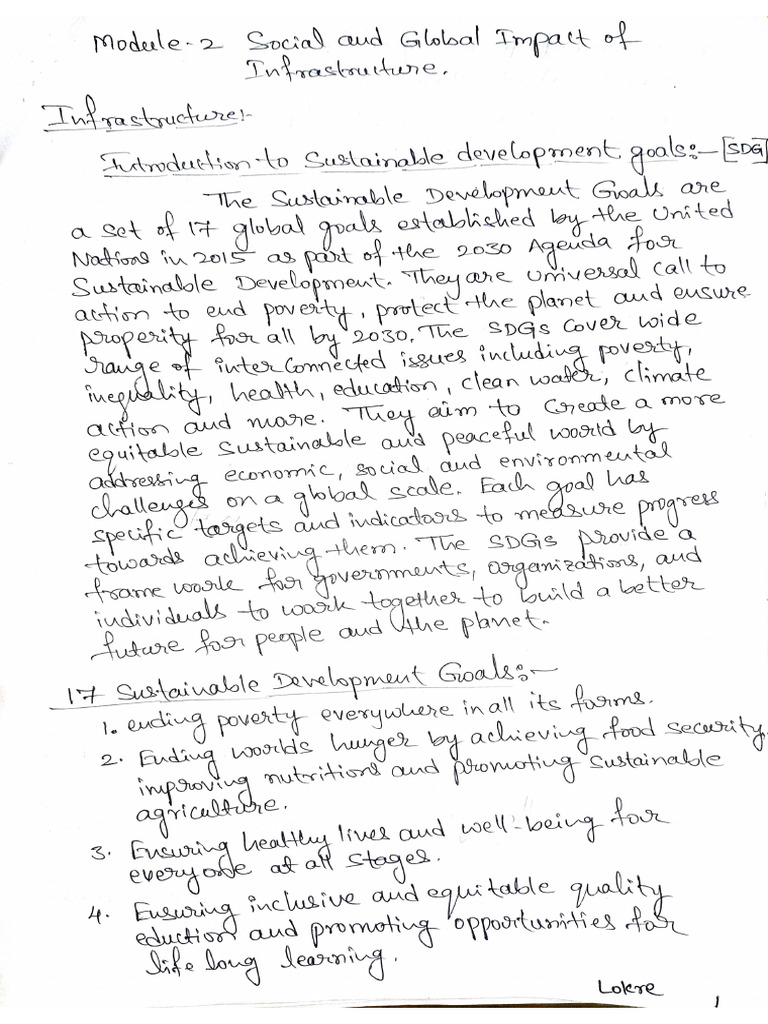 Module-2 Social and Global Impact of
Infrastructure.
Infrastructure:-
Introduction to Sustainable development goals:- [SDG]
The Sustainable Development Goals are
a set of 17 global goals established by the United
Nations in 2015 as part of the 2030 Agenda for
Sustainable Development. They are universal call to
action to end poverty, protect the planet and ensure
properity for all by 2030. The SDGs cover wide
range of inter connected issues including poverty,
inequality, health, education, clean water, climate
action and more. They aim to create a more
equitable sustainable and peaceful world by
addressing economic, social and environmental
challenges on a global scale. Each goal has
specific targets and indicators to measure progress
towards achieving them. The SDGs provide a
frame work for governments, organizations, and
individuals to work together to build a better
future for people and the planet.
17 Sustainable Development Goals:-
1. ending poverty everywhere in all its forms.
2. Ending worlds hunger by achieving food security,
improving nutritions and promoting sustainable
agriculture.
3. Ensuring healthy lives and well-being for
everyone at all stages.
4. Ensuring inclusive and equitable quality
eduction and promoting opportunities for
life long learning.
Lokre
1